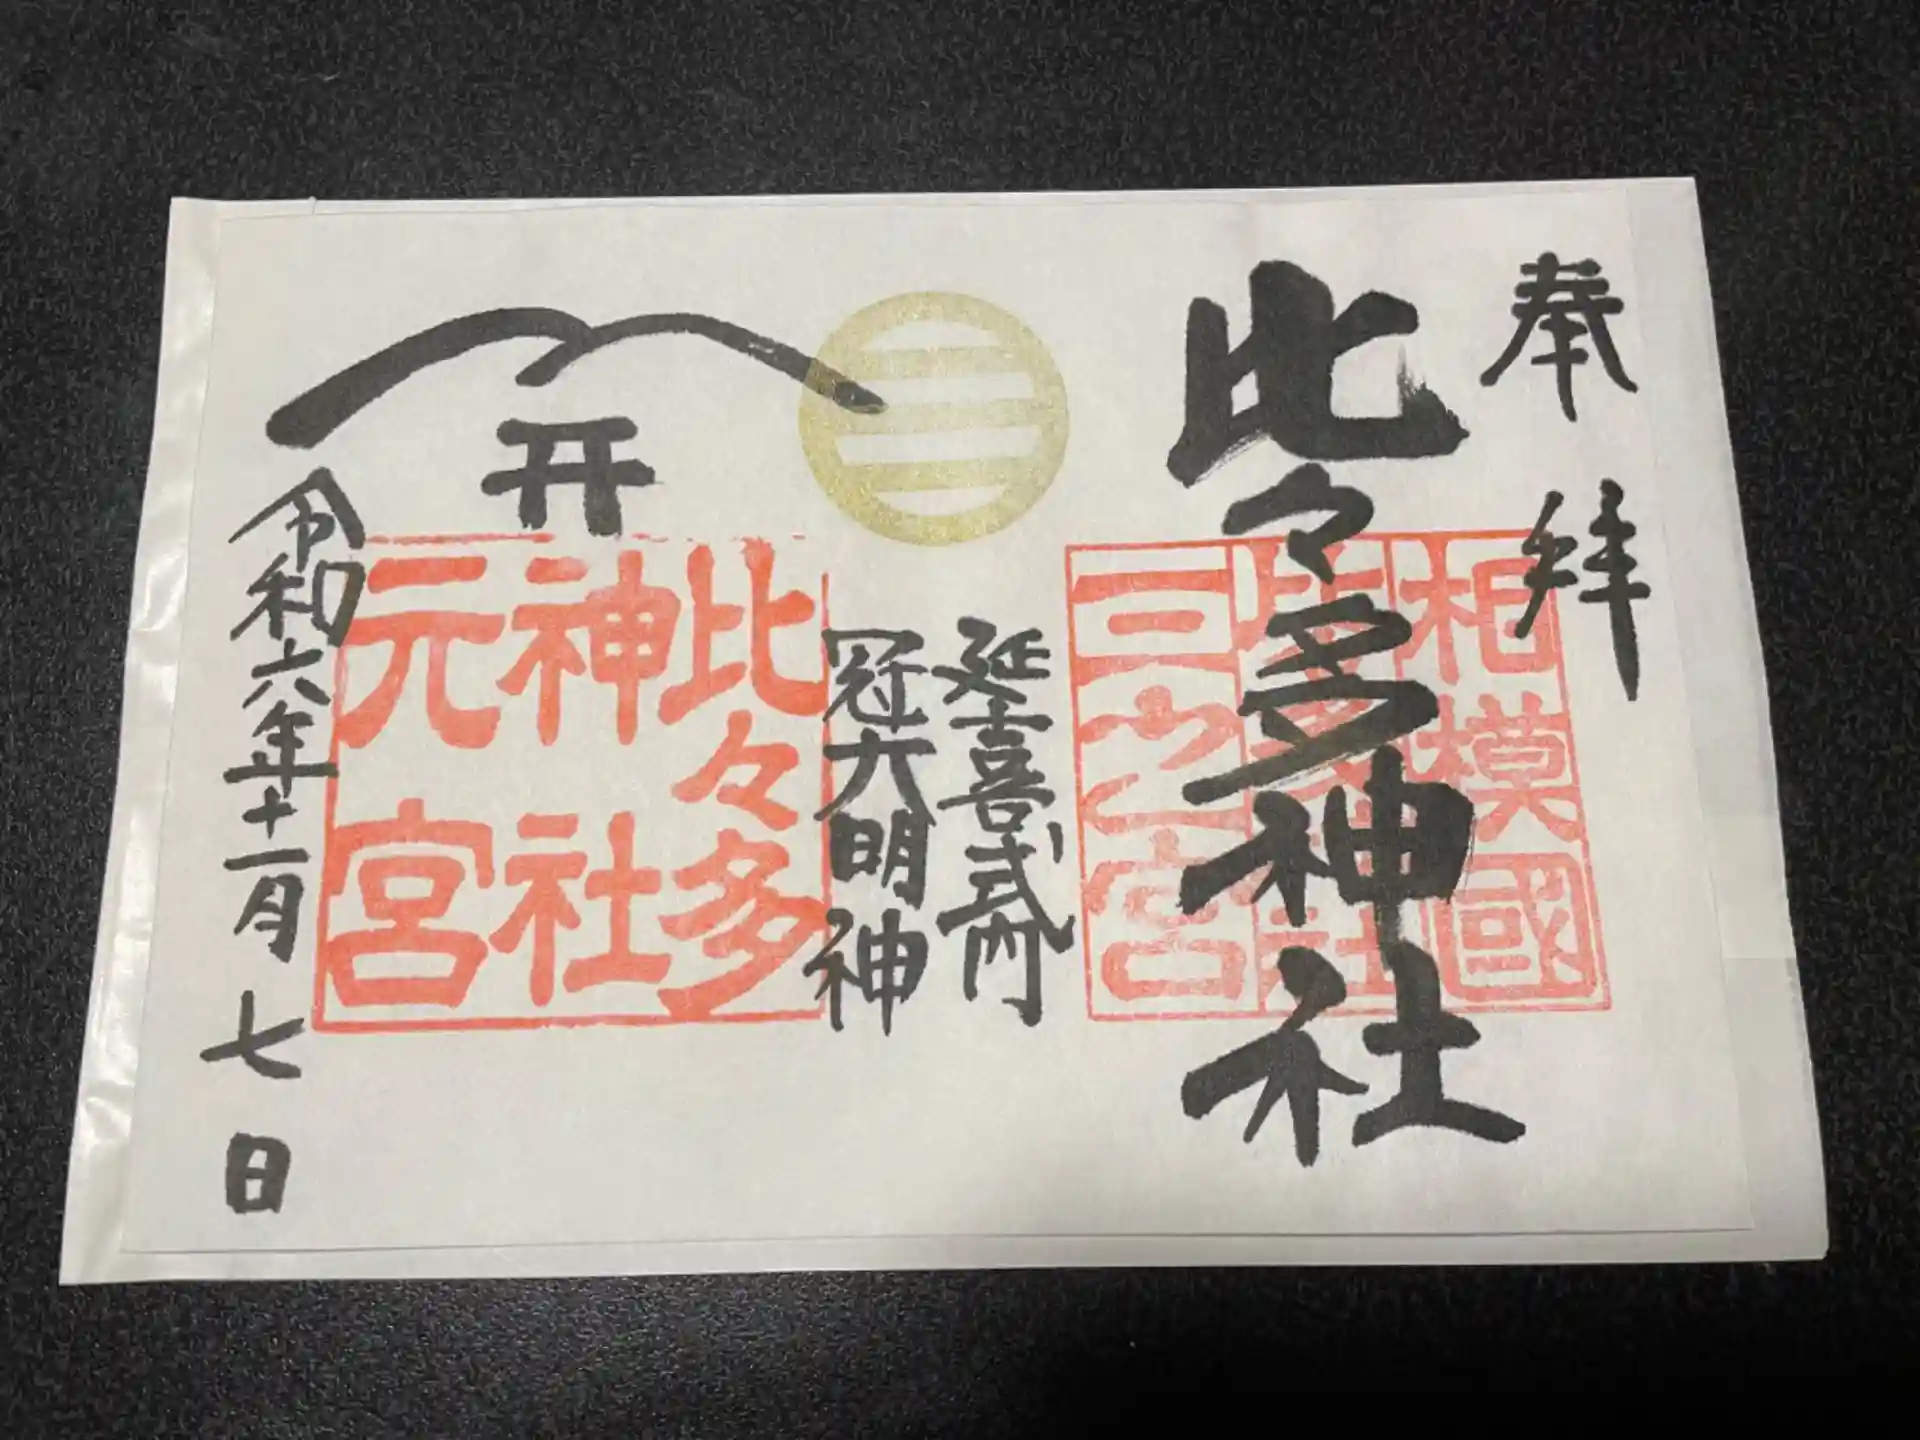 奉拝
比々多神社
相模國
比々多神社
三之宮
延喜式内
冠大明神
比々多
神社
元宮
令和六年十一月七日